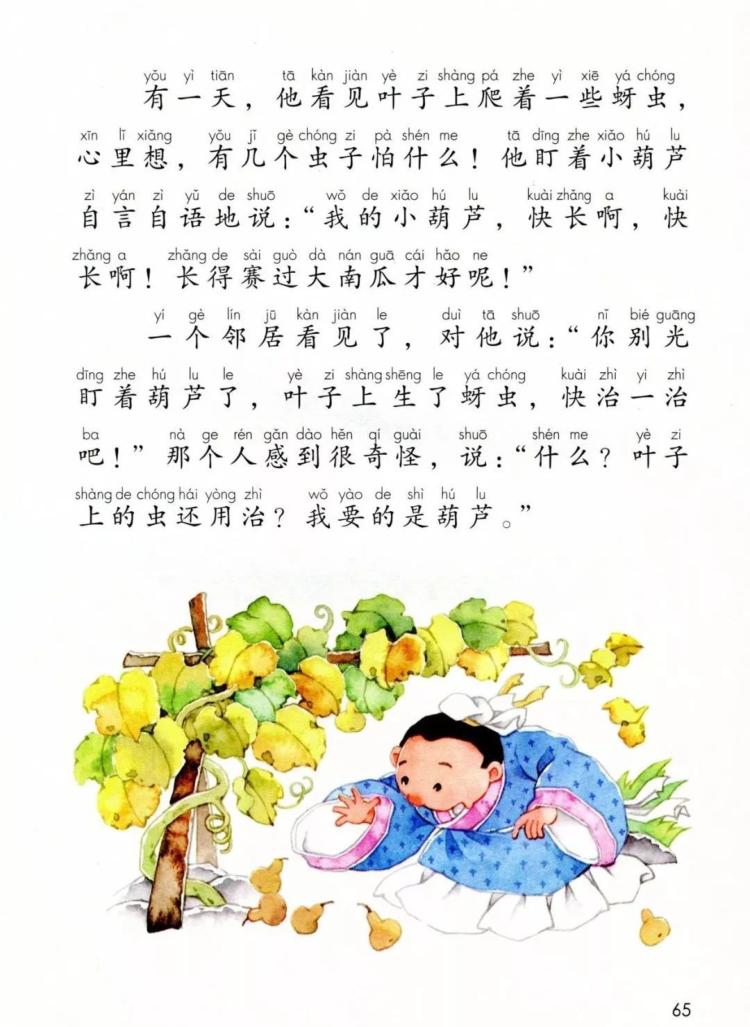 yǒu yì tiān tā kàn jiàn yè zi shàng pá zhe yì xiē yá chóng
有一天，他看见叶子上爬着一些蚜虫，
xīn lǐ xiǎng yǒu jǐ gè chóng zi pà shén me tā dīng zhe xiǎo hú lu
心里想，有几个虫子怕什么！他盯着小葫芦
zì yán zì yǔ de shuō wǒ de xiǎo hú lu kuài zhǎng a kuài
自言自语地说：“我的小葫芦，快长啊，快
zhǎng a zhǎng de sài guò dà nán guā cái hǎo ne
长啊！长得赛过大南瓜才好呢！”
yí gè lín jū kàn jiàn le duì tā shuō nǐ bié guāng
一个邻居看见了，对他说：“你别光
dīng zhe hú lu le yè zi shàng shēng le yá chóng kuài zhì yi zhì
盯着葫芦了，叶子上生了蚜虫，快治一治
ba nà ge rén gǎn dào hěn qí guài shuō shén me yè zi
吧！”那个人感到很奇怪，说：“什么？叶子
shàng de chóng hái yòng zhì wǒ yào de shì hú lu
上的虫还用治？我要的是葫芦。”
65